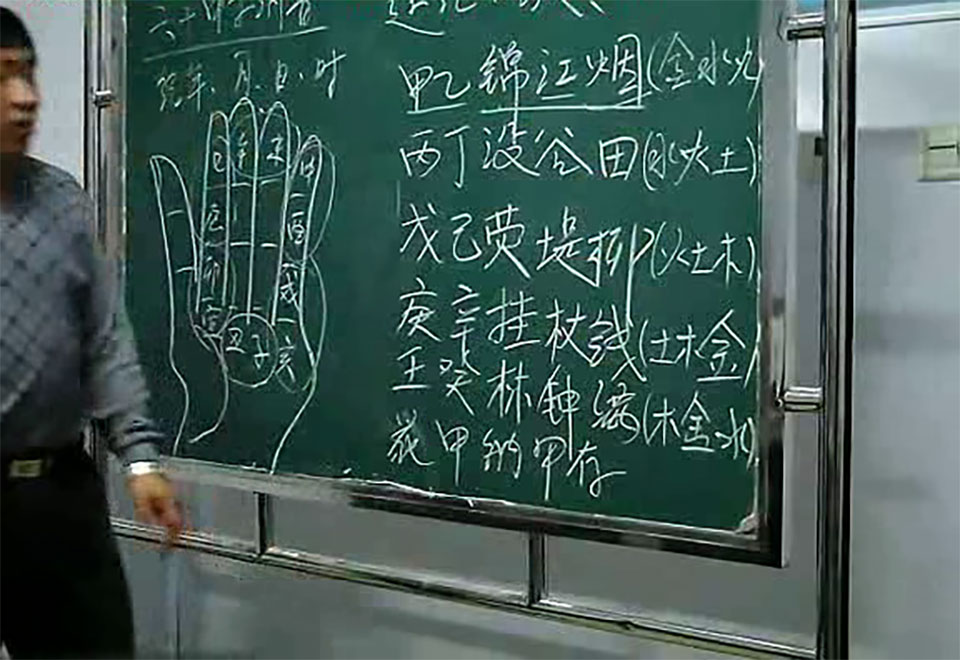 六十甲子纳音
年、月、日、时
巳 午 未 申
辰 酉
卯 戌
寅 丑 子 亥
甲乙锦江烟(金水火)
丙丁没谷田(水火土)
戊己荧堤柳(火土木)
庚辛挂杖钱(土木金)
壬癸林钟满(木金水)
花甲纳甲存